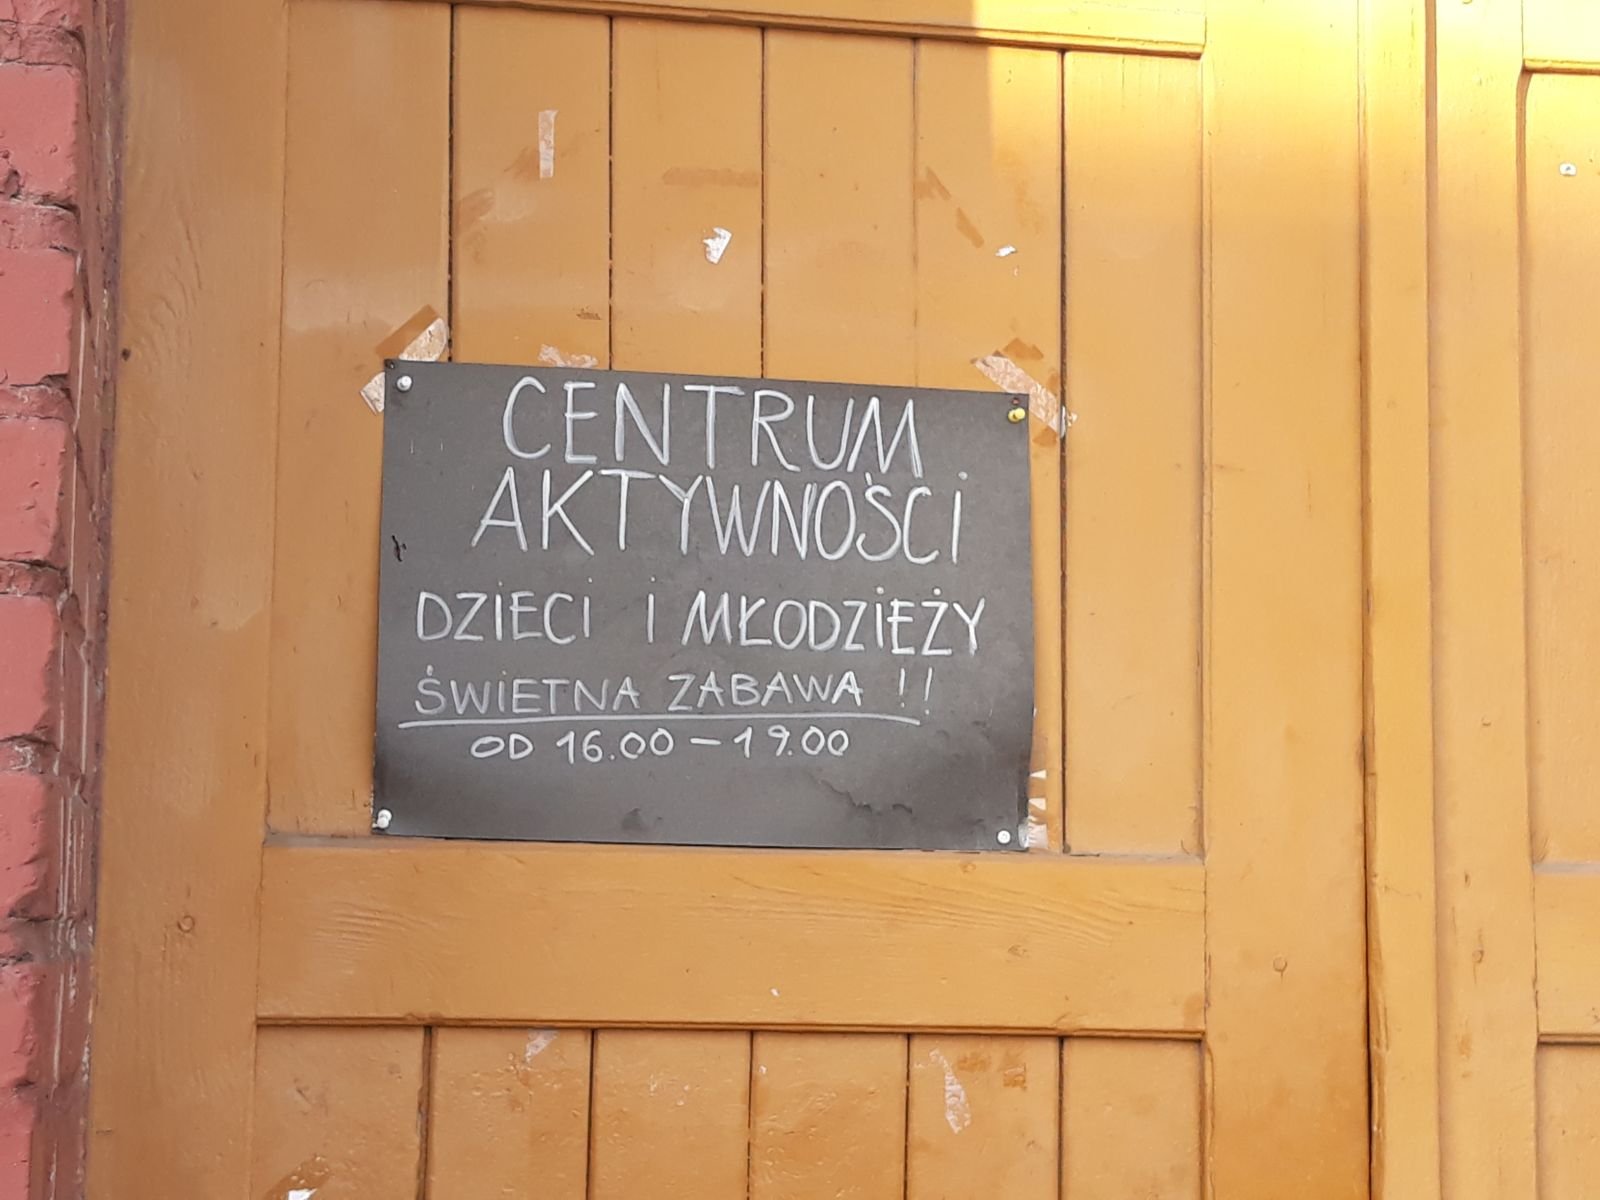 CENTRUM
AKTYWNOŚCI
DZIECI I MŁODZIEŻY
ŚWIETNA ZABAWA !!
OD 16.00 – 19.00